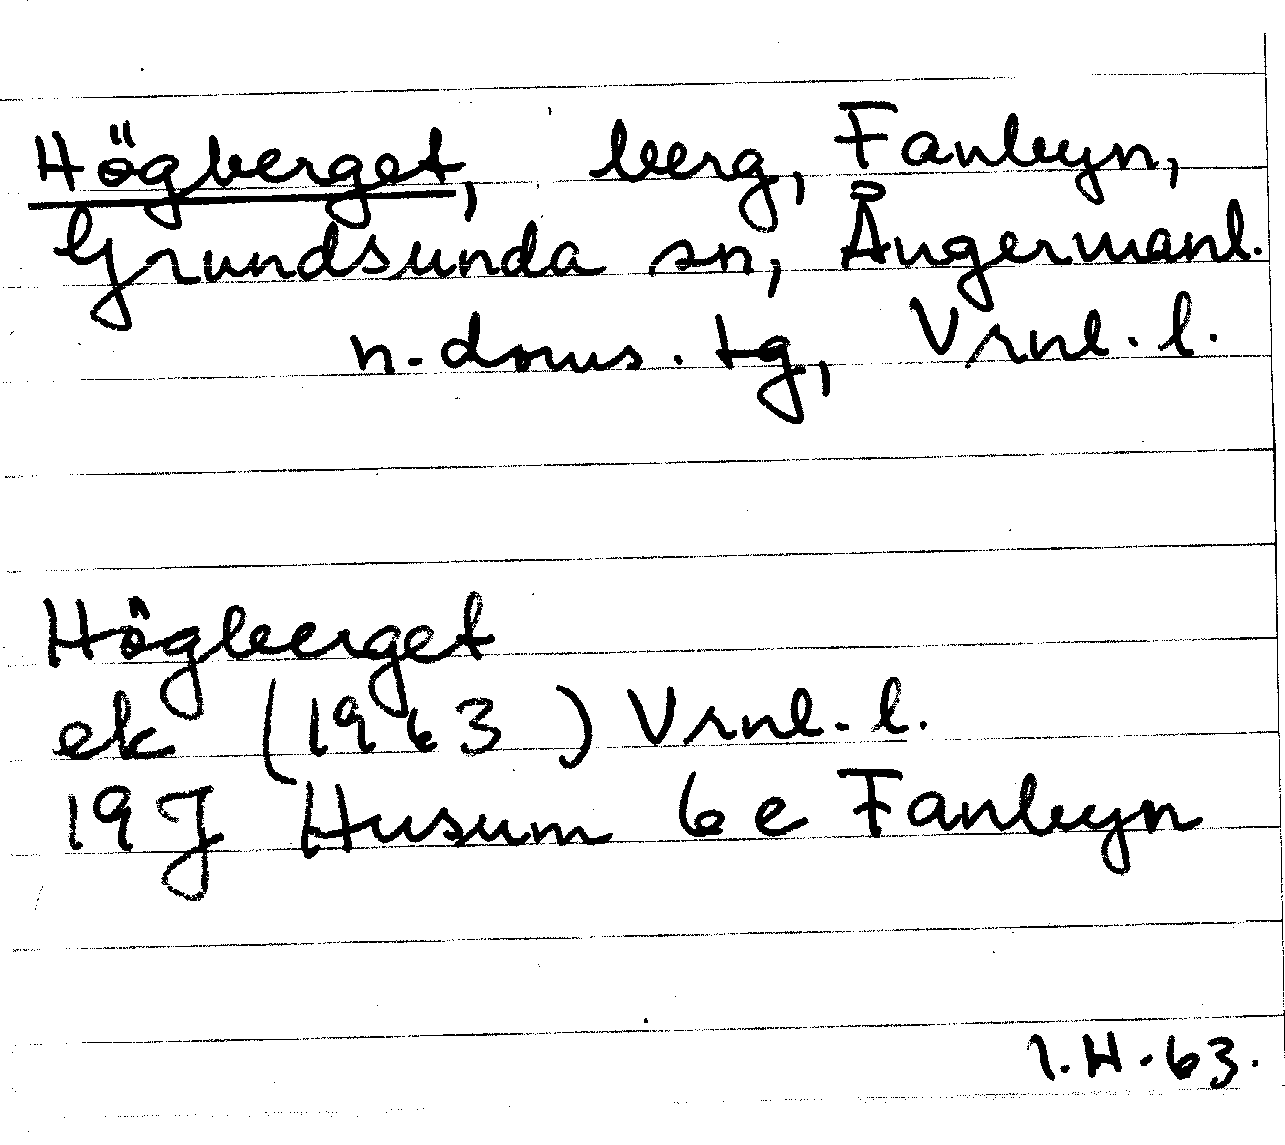 Högberget, berg, Fanbyn,
Grundsunda sn, Ångermanl.
n. doms. tg, Vrnl. l.
Högberget
ek (1963) Vrnl. l.
19J Husum 6e Fanbyn
I.H. 63.